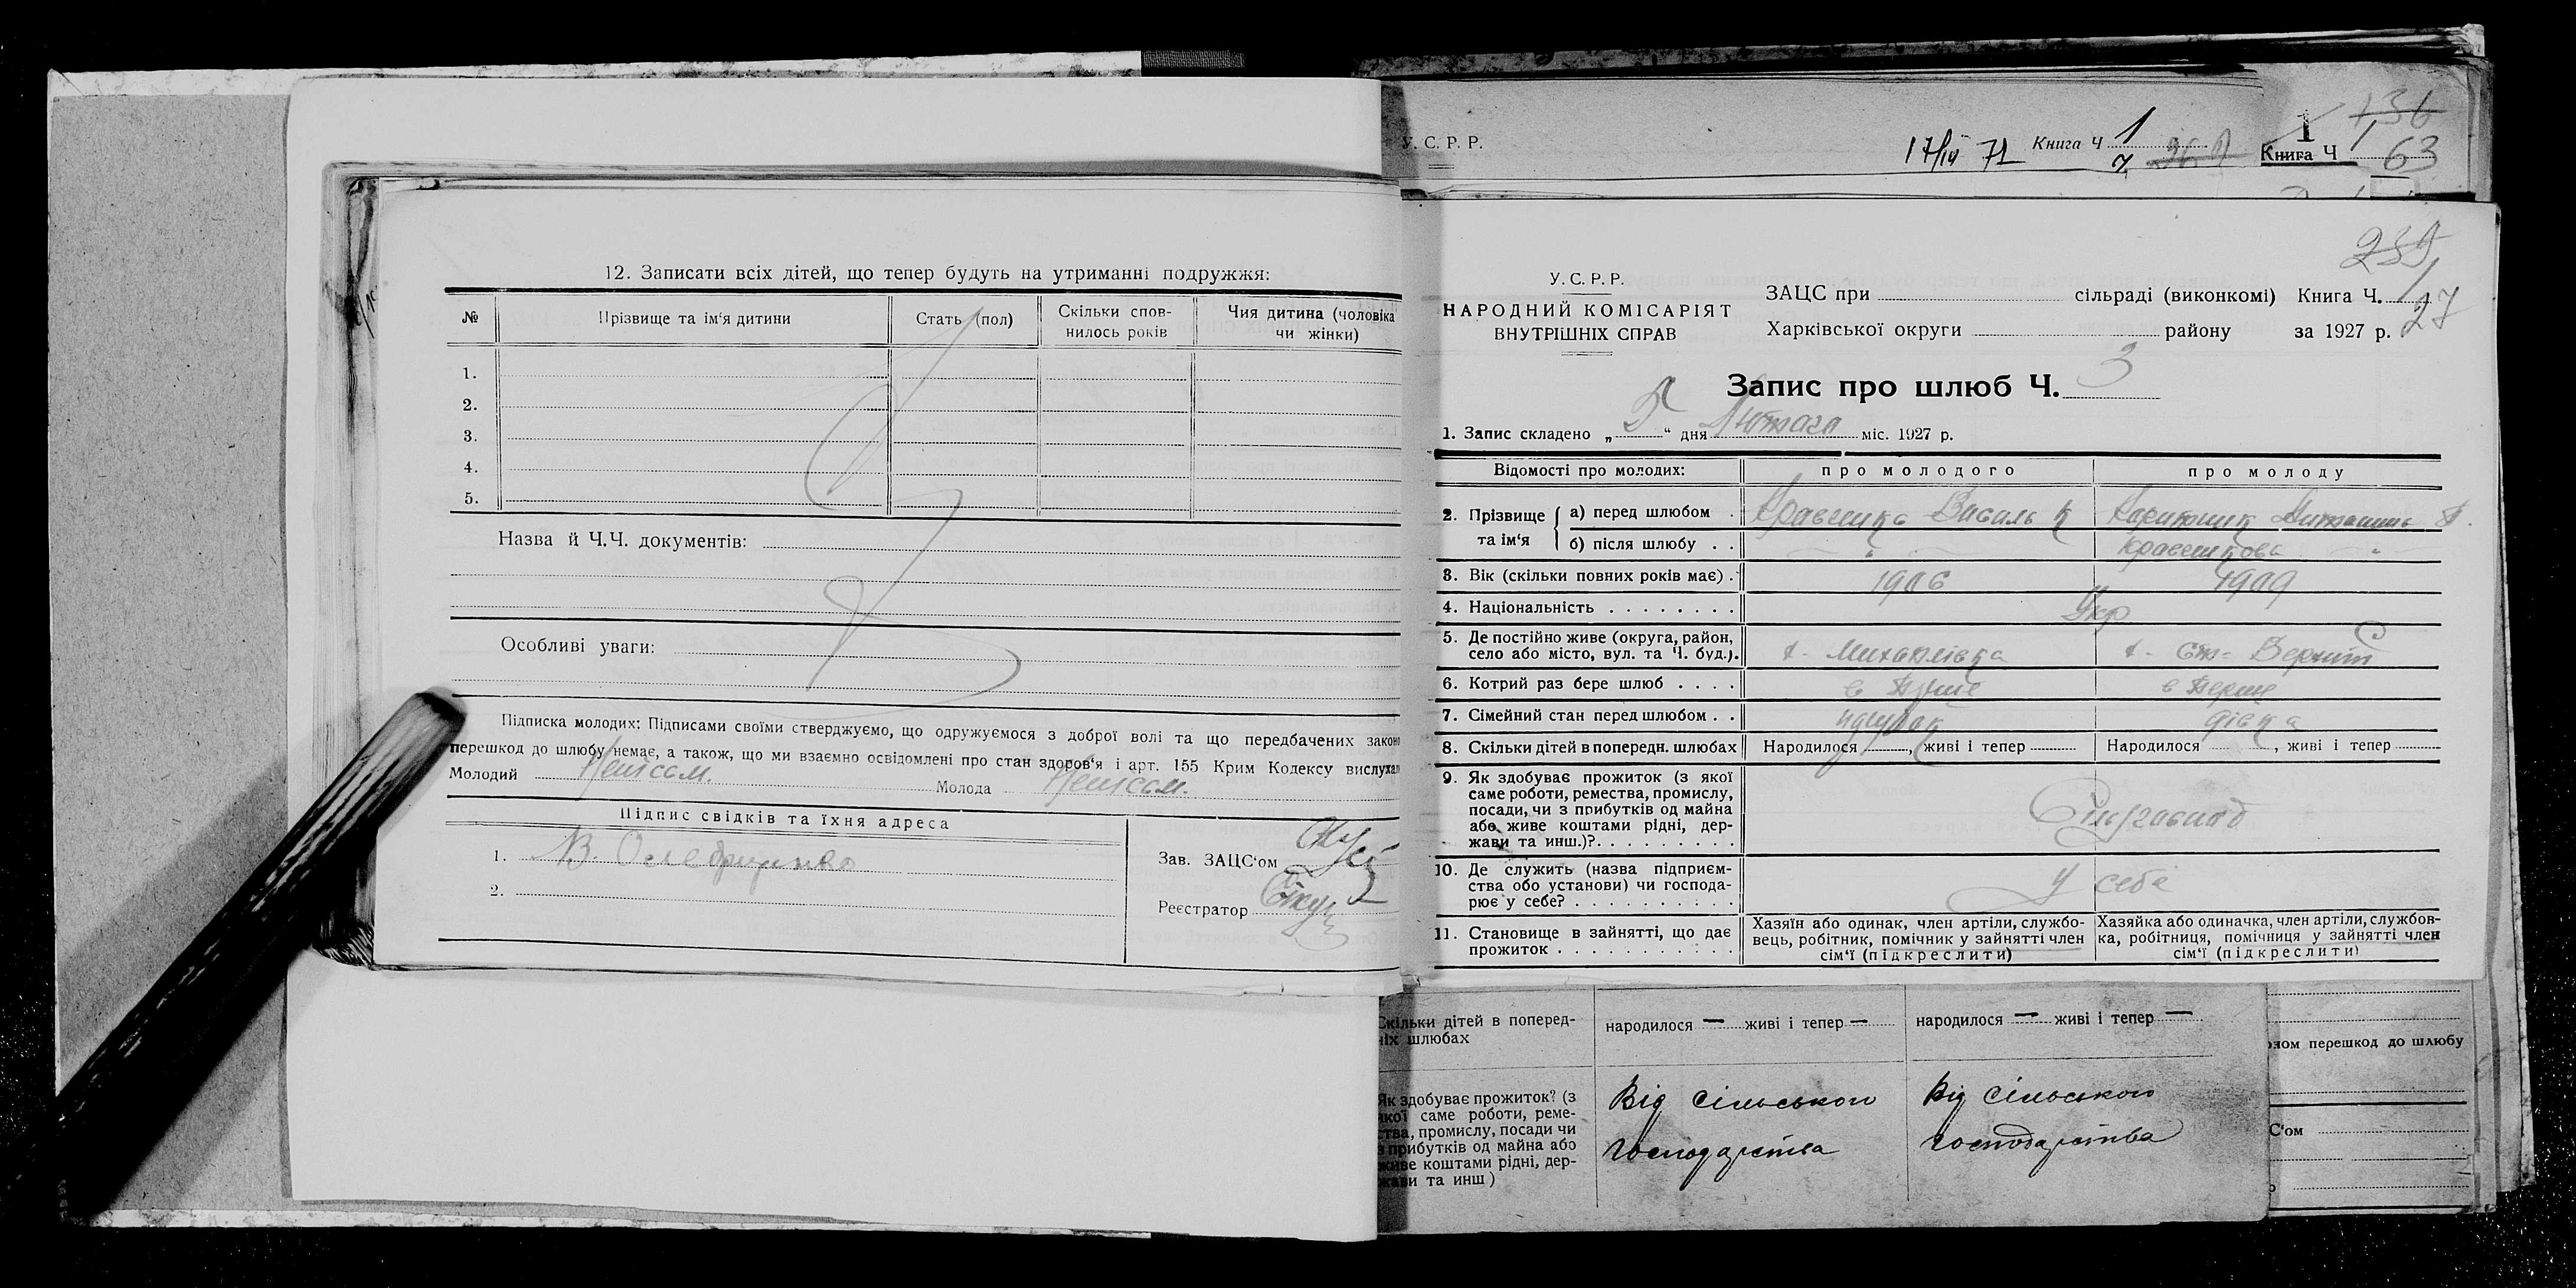 У. С. Р. Р.
17/IV 71 Книга Ч 1
1 136
Книга Ч 63
12. Записати всіх дітей, що тепер будуть на утриманні подружжя:
№ Прізвище та ім'я дитини Стать (пол) Скільки спов- Чия дитина (чоловіка
нилось років чи жінки)
1.
2.
3.
4.
5.
Назва й Ч.Ч. документів:
Особливі уваги:
Підписка молодих: Підписами своїми стверджуємо, що одружуємося з доброї волі та що передбачених законо
перешкод до шлюбу немає, а також, що ми взаємно освідомлені про стан здоров'я і арт. 155 Крим Кодексу вислухал
Молодий Непісьм. Молода Непісьм.
Підпис свідків та їхня адреса
1. В.
2.
Зав. ЗАЦС'ом
Реєстратор
239
У. С. Р. Р.
НАРОДНИЙ КОМІСАРІЯТ
ВНУТРІШНІХ СПРАВ
ЗАЦС при сільраді (виконкомі) Книга Ч. 1
Харківської округи району за 1927 р. 27
Запис про шлюб Ч. 3
1. Запис складено „ 5 “ дня Лютого міс. 1927 р.
Відомості про молодих: про молодого про молоду
2. Прізвище та ім'я а) перед шлюбом . Василь
б) після шлюбу . . „ „
3. Вік (скільки повних років має) . 1906 1909
4. Національність . . . . . . . . Укр
5. Де постійно живе (округа, район,
село або місто, вул. та Ч. буд.). х. Михайлівка
6. Котрий раз бере шлюб . . . . в перше в перше
7. Сімейний стан перед шлюбом . . парубок дівка
8. Скільки дітей в попередн. шлюбах Народилося , живі і тепер Народилося , живі і тепер
9. Як здобуває прожиток (з якої
саме роботи, ремества, промислу,
посади, чи з прибутків од майна
або живе коштами рідні, дер-
жави та инш.)?. . . . . . . . .
10. Де служить (назва підприєм-
ства обо установи) чи господа-
рює у себе? . . . . . . . . . . у себе
11. Становище в зайнятті, що дає
прожиток . . . . . . . . . . .
Хазяїн або одинак, член артіли, службо-
вець, робітник, помічник у зайнятті член
сім'ї (підкреслити)
Хазяйка або одиначка, член артіли, службов-
ка, робітниця, помічниця у зайнятті член
сім'ї (підкреслити)
Скільки дітей в поперед-
ніх шлюбах
народилося — живі і тепер — народилося — живі і тепер —
Як здобуває прожиток? (з
якої саме роботи, реме-
ства, промислу, посади чи
з прибутків од майна або
живе коштами рідні, дер-
жави та инш)
Від сільського
господарства
Від сільського
господарства
ном перешкод до шлюбу
С'ом